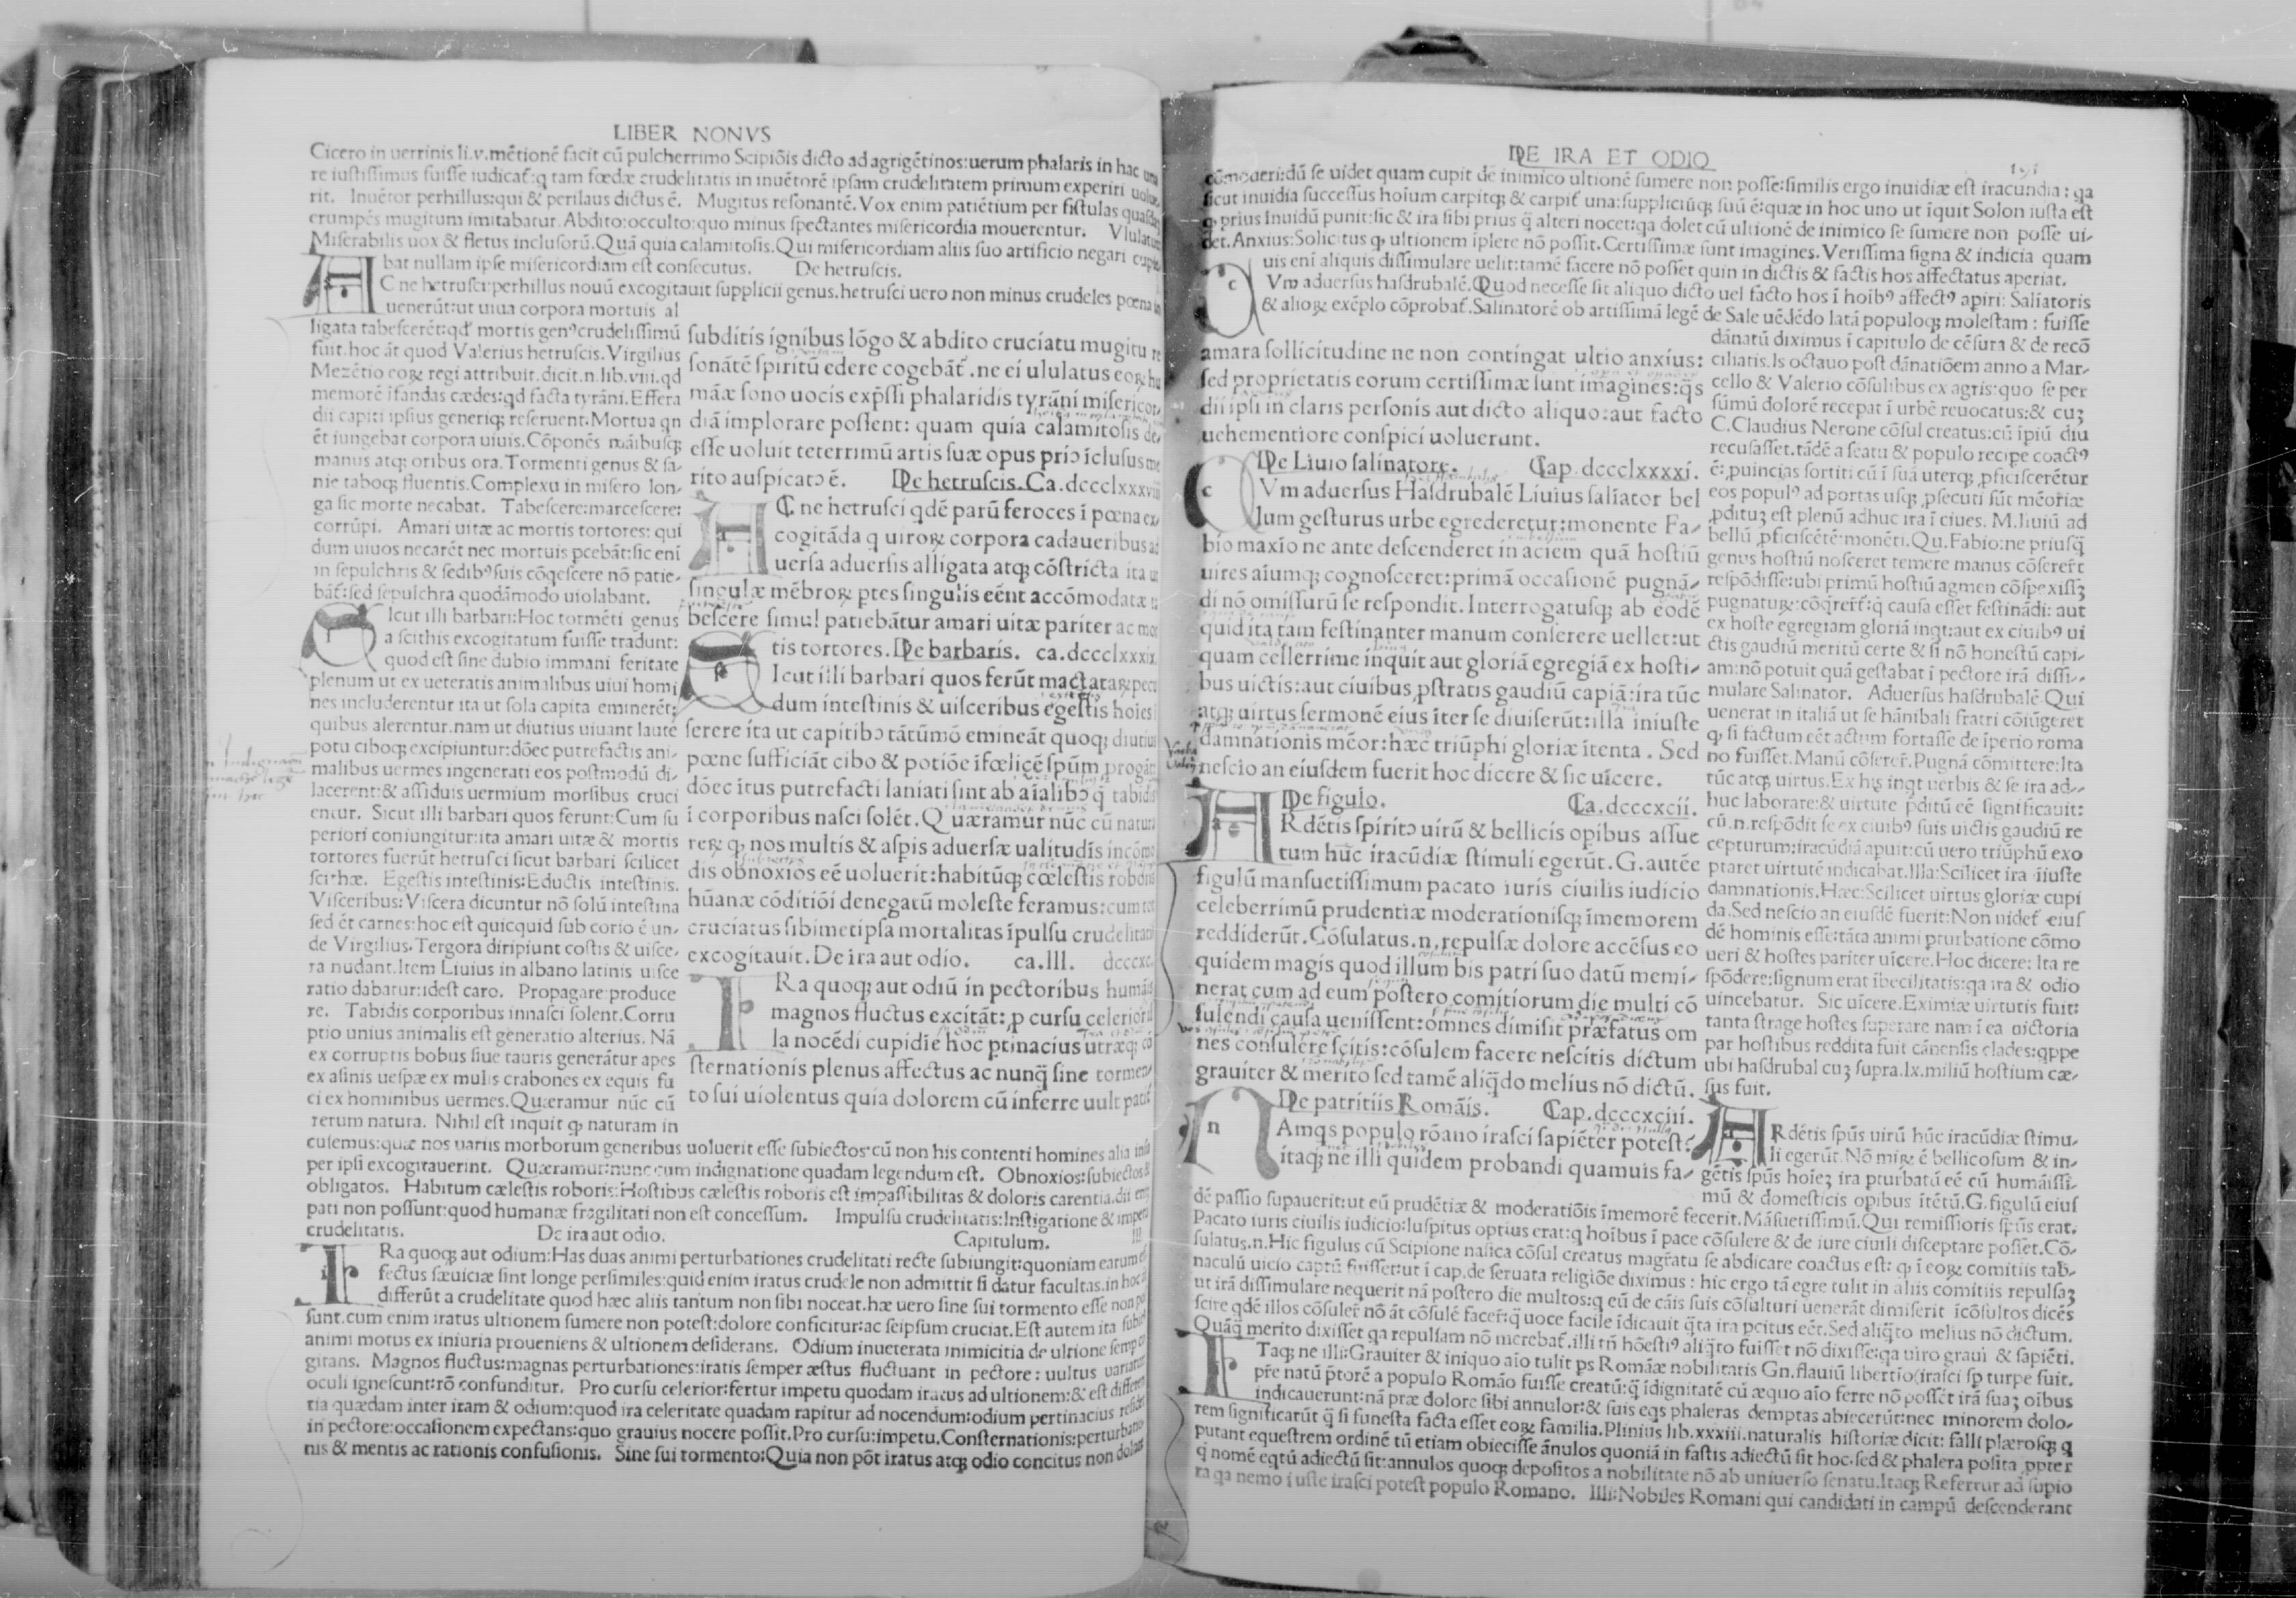 LIBER NONVS
Cicero in uerrinis li.v.mētionē facit cū pulcherrimo Scipiōis dicto ad agrigētinos:uerum phalaris in hac una
re iustissimus fuisse iudicat̄:q tam fœdæ crudelitatis in inuētorē ipsam crudelitatem primum experiri uolue
rit. Inuētor perhillus:qui & perilaus dictus ē. Mugitus resonantē.Vox enim patiētium per fistulas quasdam
erumpēs mugitum imitabatur.Abdito:occulto:quo minus spectantes misericordia mouerentur. Vlulatus
Miserabilis uox & fletus inclusorū.Quā quia calamitosis.Qui misericordiam aliis suo artificio negari cupie
bat nullam ipse misericordiam est consecutus. De hetruscis.
AC ne hetrusci:perhillus nouū excogitauit supplicii genus.hetrusci uero non minus crudeles pœna in
uenerūt:ut uiua corpora mortuis al
ligata tabescerēt:qd' mortis genꝰ crudelissimū
fuit.hoc āt quod Valerius hetruscis.Virgilius
Mezētio eoꝝ regi attribuit.dicit.n.lib.viii.qd
memorē īfandas cædes:qd facta tyrāni.Effera
dii capiti ipsius generiqꝫ reseruent.Mortua qn
ēt iungebat corpora uiuis.Cōponēs māibusqꝫ
manus atqꝫ oribus ora.Tormenti genus & sa-
nie taboqꝫ fluentis.Complexu in misero lon-
ga sic morte necabat. Tabescere:marcescere:
corrūpi. Amari uitæ ac mortis tortores: qui
dum uiuos necarēt nec mortuis pcebāt:sic enī
in sepulchris & sedibꝰ suis cōqescere nō patie-
bāt̄:sed sepulchra quodāmodo uiolabant.
SIcut illi barbari:Hoc tormēti genus
a scithis excogitatum fuisse tradunt:
quod est sine dubio immani feritate
plenum ut ex ueteratis animalibus uiui homi
nes includerentur ita ut sola capita eminerēt:
quibus alerentur.nam ut diutius uiuant laute
potu ciboqꝫ excipiuntur:dōec putrefactis ani-
malibus uermes ingenerati eos postmodū di-
lacerent:& assiduis uermium morsibus cruci
entur. Sicut illi barbari quos ferunt:Cum su
periori coniungitur:ita amari uitæ & mortis
tortores fuerūt hetrusci sicut barbari scilicet
scithæ. Egestis intestinis:Eductis intestinis.
Visceribus:Viscera dicuntur nō solū intestina
sed ēt carnes:hoc est quicquid sub corio ē un-
de Virgilius.Tergora diripiunt costis & uisce-
ra nudant.Item Liuius in albano latinis uisce
ratio dabatur:idest caro. Propagare:produce
re. Tabidis corporibus innasci solent.Corru
ptio unius animalis est generatio alterius. Nā
ex corruptis bobus siue tauris generātur apes
ex asinis uespæ ex mulis crabones ex equis fu
ci ex hominibus uermes.Quæramur nūc cū
rerum natura. Nihil est inquit qꝫ naturam in
subditis ignibus lōgo & abdito cruciatu mugitu re
sonātē spiritū edere cogebāt̄.ne ei ululatus eoꝝ hu
māæ sono uocis exp̄ssi phalaridis tyrāni misericor-
diā implorare possent: quam quia calamitosis de-
esse uoluit teterrimū artis suæ opus priꝰ īclusus me
rito auspicatꝰ ē. De hetruscis.Ca.dccclxxxviii
AC ne hetrusci qdē parū feroces ī pœna ex-
cogitāda q uiroꝝ corpora cadaueribus ad
uersa aduersis alligata atqꝫ cōstricta ita ut
singulæ mēbroꝝ ptes singulis eēnt accōmodatæ ta
bescere simul patiebātur amari uitæ pariter ac mor
tis tortores.De barbaris. ca.dccclxxxix.
SIcut illi barbari quos ferūt mactataꝝ pecu
dum intestinis & uisceribus egestis hoies ī
serere ita ut capitibꝰ tātūmō emineāt quoqꝫ diutius
pœne sufficiāt cibo & potiōe īfœlicē spūm progāt
dōec ītus putrefacti laniati sint ab aīalibꝰ q̄ tabidis
ī corporibus nasci solēt.Quæramur nūc cū natura
reꝝ qꝫ nos multis & aspis aduersæ ualitudis incōmo
dis obnoxios eē uoluerit:habitūqꝫ cœlestis roboris
hūanæ cōditiōi denegatū moleste feramus:cum tot
cruciatus sibimetipsa mortalitas īpulsu crudelitatis
excogitauit.De ira aut odio. ca.III. dcccxc.
IRa quoqꝫ aut odiū in pectoribus humāis
magnos fluctus excitāt: ꝓ cursu celerior il
la nocēdi cupidīe hoc ptinacius utræqꝫ cō
sternationis plenus affectus ac nunq̄ sine tormen
to sui uiolentus quia dolorem cū inferre uult patit̄
cusemus:quæ nos uariis morborum generibus uoluerit esse subiectos:cū non his contenti homines alia insu
per ipsi excogitauerint. Quæramur:nunc cum indignatione quadam legendum est. Obnoxios:subiectos &
obligatos. Habitum cælestis roboris:Hostibus cælestis roboris est impassibilitas & doloris carentia.dii enim
pati non possunt:quod humanæ fragilitati non est concessum. Impulsu crudelitatis:Instigatione & impetu
crudelitatis. De ira aut odio. Capitulum. III
IRa quoqꝫ aut odium:Has duas animi perturbationes crudelitati recte subiungit:quoniam earum ef
fectus sæuiciæ sint longe persimiles:quid enim iratus crudele non admittit si datur facultas.in hoc āt
differūt a crudelitate quod hæc aliis tantum non sibi noceat.hæ uero sine sui tormento esse non pos
sunt.cum enim iratus ultionem sumere non potest:dolore conficitur:ac seipsum cruciat.Est autem ira subitus
animi motus ex iniuria proueniens & ultionem desiderans. Odium inueterata inimicitia de ultione semp co
gitans. Magnos fluctus:magnas perturbationes:iratis semper æstus fluctuant in pectore: uultus uariatur
oculi ignescunt:rō confunditur. Pro cursu celerior:fertur impetu quodam iratus ad ultionem:& est differen
tia quædam inter iram & odium:quod ira celeritate quadam rapitur ad nocendum:odium pertinacius residet
in pectore:occasionem expectans:quo grauius nocere possit.Pro cursu:impetu.Consternationis:perturbatio
nis & mentis ac rationis confusionis. Sine sui tormento:Quia non pōt iratus atqꝫ odio concitus non dolere
DE IRA ET ODIO
cōmoueri:dū se uidet quam cupit de inimico ultionē sumere non posse:similis ergo inuidiæ est iracundia: qa
sicut inuidia successus hoium carpitqꝫ & carpit̄ una:suppliciūqꝫ suū ē:quæ in hoc uno ut iquit Solon iusta est
qꝫ prius Inuidū punit:sic & ira sibi prius q̄ alteri nocet:qa dolet cū ultionē de inimico se sumere non posse ui-
det.Anxius:Solicitus qꝫ ultionem īplere nō possit.Certissimæ sunt imagines.Verissima signa & indicia quam
uis eni aliquis dissimulare uelit:tamē facere nō posset quin in dictis & factis hos affectatus aperiat.
CVm aduersus hasdrubalē.Quod necesse sit aliquo dicto uel facto hos ī hoibꝰ affectꝰ apiri: Saliatoris
& alioꝝ exēplo cōprobat̄.Salinatorē ob artissimā legē de Sale uēdēdo latā populoqꝫ molestam: fuisse
amara sollicitudine ne non contingat ultio anxius:
sed proprietatis eorum certissimæ sunt imagines:q̄s
dii ipsi in claris personis aut dicto aliquo:aut facto
uehementiore conspici uoluerunt.
De Liuio salinatore. Cap.dccclxxxxi.
CVm aduersus Hasdrubalē Liuius saliator bel
lum gesturus urbe egrederetur:monente Fa-
bio maxīo ne ante descenderet in aciem quā hostiū
uires aīumqꝫ cognosceret:primā occasionē pugnā-
di nō omissurū se respondit.Interrogatusqꝫ ab eodē
quid ita tam festinanter manum conserere uellet:ut
quam cellerrime inquit aut gloriā egregiā ex hosti-
bus uictis:aut ciuibus ꝓstratis gaudiū capiā:ira tūc
atqꝫ uirtus sermonē eius īter se diuiserūt:illa iniuste
damnationis mēor:hæc triūphi gloriæ ītenta. Sed
nescio an eiusdem fuerit hoc dicere & sic uīcere.
De figulo. Ca.dcccxcii.
ARdētis spiritꝰ uirū & bellicis opibus assue
tum hūc iracūdiæ stimuli egerūt.G.autēe
figulū mansuetissimum pacato iuris ciuilis iudicio
celeberrimū prudentiæ moderationisqꝫ īmemorem
reddiderūt.Cōsulatus.n.repulsæ dolore accēsus eo
quidem magis quod illum bis patri suo datū memi-
nerat cum ad eum postero comitiorum die multi cō
sulendi causa uenissent:omnes dimisit præfatus om
nes consulere scitis:cōsulem facere nescitis dictum
grauiter & merito sed tamē aliq̄do melius nō dictū.
De patritiis Romāis. Cap.dcccxciii.
NAmqs populo rōano irasci sapiēter potest:
itaqꝫ ne illi quidem probandi quamuis fa-
dānatū diximus ī capitulo de cēsura & de recō
ciliatis.Is octauo post dānatiōem anno a Mar-
cello & Valerio cōsulibus ex agris:quo se per
sūmū dolorē recepat ī urbē reuocatus:& cuꝫ
C.Claudius Nerone cōsul creatus:cū īpiū diu
recusasset.tādē a seatu & populo recipe coactꝰ
ē:puincias sortiti cū ī suā uterqꝫ ꝓficiscerētur
eos populꝰ ad portas usqꝫ ꝓsecuti sūt mēoriæ
ꝓdituꝫ est plenū adhuc ira ī ciues. M.liuiū ad
bellū ꝓficiscētē:monēti.Qu.Fabio:ne priusq̄
genus hostiū nosceret temere manus cōsereret
respōdisse:ubi primū hostiū agmen cōspexissꝫ
pugnatuꝝ:cōq̄ret̄:q̄ causa esset festināndi: aut
ex hoste egregiam gloriā inqt:aut ex ciuibꝰ ui
ctis gaudiū meritū certe & si nō honestū capi-
am:nō potuit quā gestabat ī pectore irā dissi-
mulare Salinator. Aduersus hasdrubalē.Qui
uenerat in italiā ut se hānibali fratri cōiūgeret
qꝫ si factum eēt actum fortasse de īperio roma
no fuisset.Manū cōserer̄.Pugnā cōmittere:Ita
tūc atqꝫ uirtus.Ex his inqt uerbis & se ira ad-
huc laborare:& uirtute pditū eē significauit:
cū.n.respōdit se ex ciuibꝰ suis uictis gaudiū re
cepturum:iracūdiā apuit:cū uero triūphū exo
ptaret uirtutē indicabat.Illa:Scilicet ira iiuste
damnationis.Hæc:Scilicet uirtus gloriæ cupi
da.Sed nescio an eiusdē fuerit:Non uidet̄ eius
dē hominis esse:tāta animi pturbatione cōmo
ueri & hostes pariter uīcere.Hoc dicere: Ita re
spōdere:signum erat ībecilitatis:qa ira & odio
uincebatur. Sic uīcere.Eximiæ uirtutis fuit:
tanta strage hostes superare nam ī ea uictoria
par hostibus reddita fuit cānensis clades:qppe
ubi hasdrubal cuꝫ supra.lx.miliū hostium cæ-
sus fuit.
ARdētis spūs uirū hūc iracūdiæ stimu-
li egerūt.Nō miꝝ ē bellicosum & in-
gētis spūs hoieꝫ ira pturbatū eē cū humāissi-
mū & domesticis opibus ītētū.G.figulū eius
dē passio supauerit:ut eū prudētiæ & moderatiōis īmemorē fecerit.Māsuetissimū.Qui remissioris spūs erat.
Pacato iuris ciuilis iudicio:Iuspitus optius erat:q hoibus ī pace cōsulere & de iure ciuili disceptare posset.Cō-
sulatus.n.Hic figulus cū Scipione nasica cōsul creatus magr̄atu se abdicare coactus est: qꝫ ī eoꝝ comitiis tab-
naculū uicio captū fuisset:ut ī cap.de seruata religiōe diximus: hic ergo tā egre tulit in aliis comitiis repulsaꝫ
ut irā dissimulare nequerit nā postero die multos:q eū de cāis suis cōsulturi uenerāt dimiserit īcōsultos dicēs
scire qdē illos cōsuler̄ nō āt cōsulē facer̄:q̄ uoce facile īdicauit q̄ta ira pcitus eēt.Sed aliq̄to melius nō dictum.
Quāq̄ merito dixisset qa repulsam nō merebat̄.illi tn̄ hōestiꝰ aliq̄to fuisset nō dixisse:qa uiro graui & sapiēti.
ITaqꝫ ne illi:Grauiter & iniquo aīo tulit ps Romāæ nobilitatis Gn.flauiū libertīo(irasci sp turpe fuit.
pr̄e natū p̄torē a populo Romāo fuisse creatū:q̄ īdignitatē cū æquo aīo ferre nō possēt irā suaꝫ oībus
indicauerunt:nā præ dolore sibi annulor:& suis eqs phaleras demptas abiecerūt:nec minorem dolo-
rem significarūt q̄ si funesta facta esset eoꝝ familia.Plinius lib.xxxiii.naturalis historiæ dicit: falli plærosqꝫ q
putant equestrem ordinē tū etiam obiecisse ānulos quoniā in fastis adiectū sit hoc.sed & phalera posita ꝓpter
q̄ nomē eqtū adiectū sit:annulos quoqꝫ depositos a nobilitate nō ab uniuerso senatu.Itaqꝫ Refertur ad supio
ra qa nemo iuste irasci potest populo Romano. Illi:Nobiles Romani qui candidati in campū descenderant